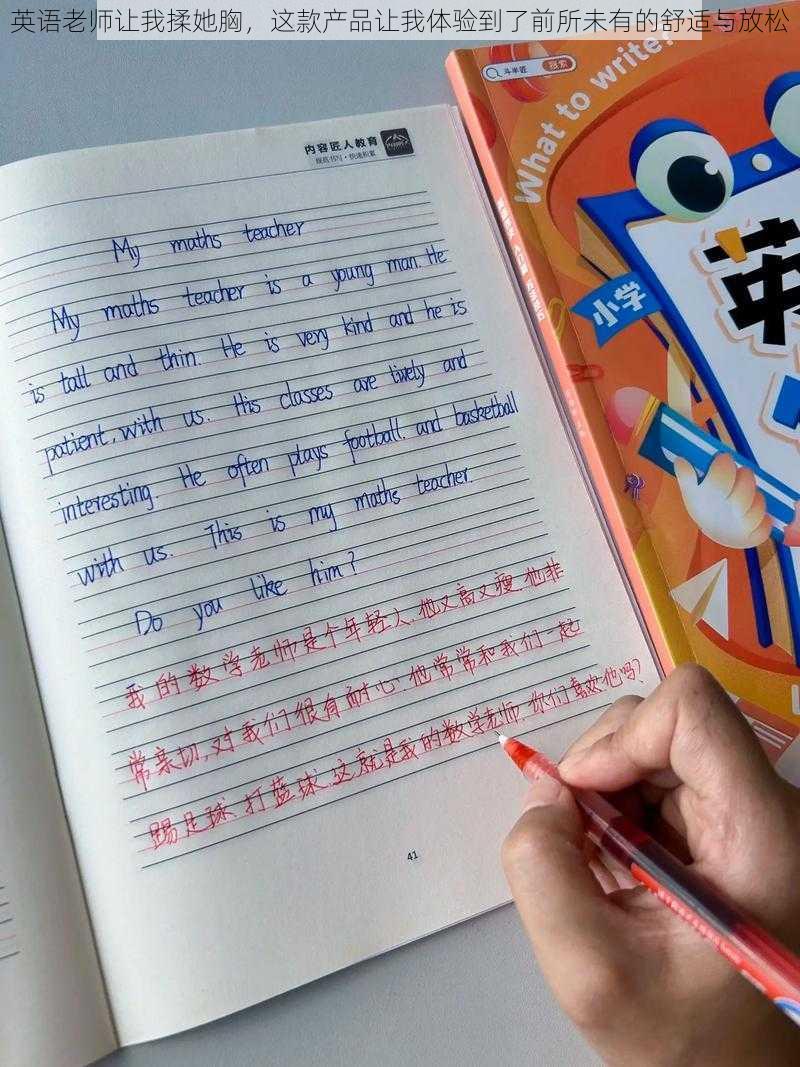 英语老师让我揉她胸，这款产品让我体验到了前所未有的舒适与放松
内容匠人教育
提高书写·快速积累
My maths teacher
My maths teacher is a young man. He
is tall and thin. He is very kind and he is
patient, with us. His classes are lively and
interesting. He often plays football, and basketball
with us. This is my maths teacher.
Do you like him?
我的数学老师是个年轻人.他又高又瘦.他非
常亲切,对我们很有耐心.他常常和我们一起
踢足球、打蓝球.这就是我的数学老师.你们喜欢他吗?
41
斗半匠
搜索
What to write?
小学
英